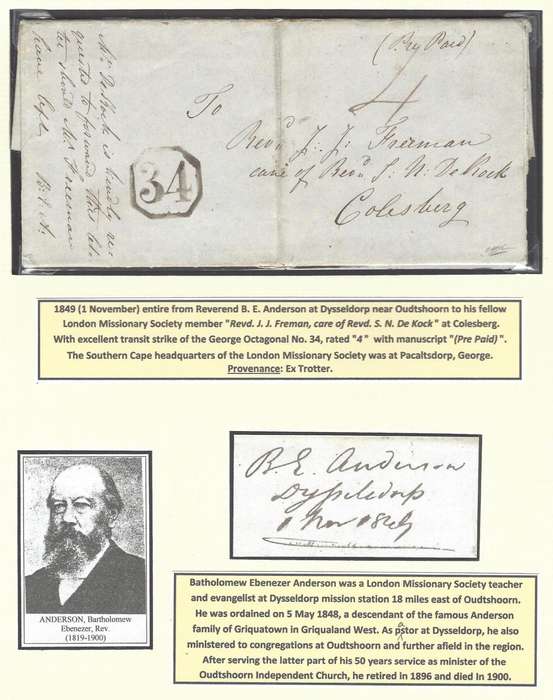 (Pre Paid)
4
To
Revd. J. J. Freeman
care of Revd. S. N. De Kock
Colesberg
34
Mr. De Kock is kindly re-
quested to forward this let-
ter should Mr. Freeman
have left B. E. A.
1849 (1 November) entire from Reverend B. E. Anderson at Dysseldorp near Oudtshoorn to his fellow
London Missionary Society member "Revd. J. J. Freman, care of Revd. S. N. De Kock" at Colesberg.
With excellent transit strike of the George Octagonal No. 34, rated "4" with manuscript "(Pre Paid)".
The Southern Cape headquarters of the London Missionary Society was at Pacaltsdorp, George.
Provenance: Ex Trotter.
ANDERSON, Bartholomew
Ebenezer, Rev.
(1819-1900)
B. E. Anderson
Dysseldorp
1 Nov 1849
Batholomew Ebenezer Anderson was a London Missionary Society teacher
and evangelist at Dysseldorp mission station 18 miles east of Oudtshoorn.
He was ordained on 5 May 1848, a descendant of the famous Anderson
family of Griquatown in Griqualand West. As pastor at Dysseldorp, he also
ministered to congregations at Oudtshoorn and further afield in the region.
After serving the latter part of his 50 years service as minister of the
Oudtshoorn Independent Church, he retired in 1896 and died In 1900.